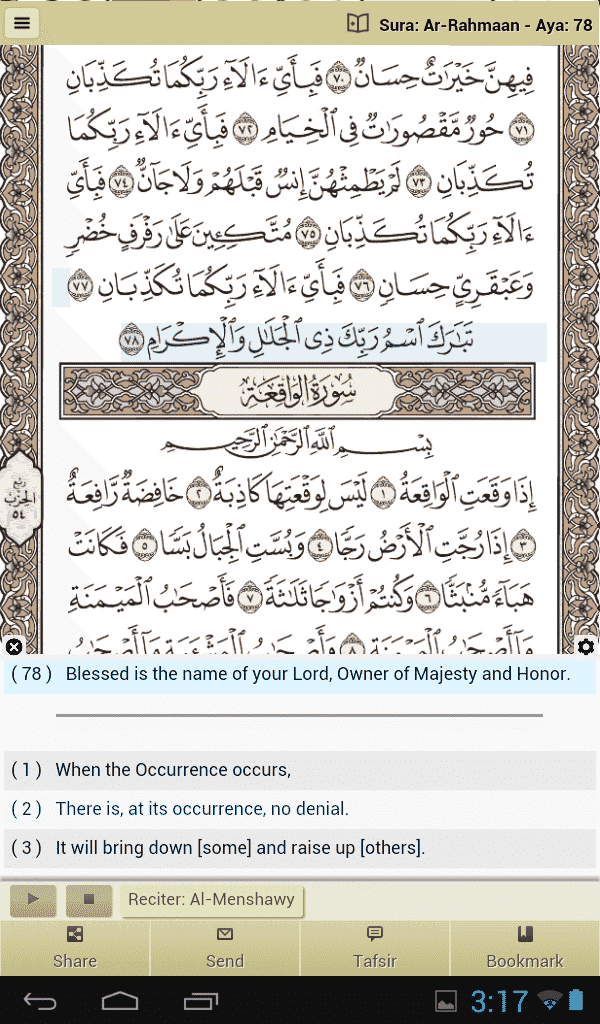 Sura: Ar-Rahmaan - Aya: 78
فِيهِنَّ خَيْرَٰتٌ حِسَانٌ ٧٠ فَبِأَيِّ ءَالَآءِ رَبِّكُمَا تُكَذِّبَانِ
٧١ حُورٌ مَّقْصُورَٰتٌ فِي ٱلْخِيَامِ ٧٢ فَبِأَيِّ ءَالَآءِ رَبِّكُمَا
تُكَذِّبَانِ ٧٣ لَمْ يَطْمِثْهُنَّ إِنسٌ قَبْلَهُمْ وَلَا جَآنٌّ ٧٤ فَبِأَيِّ
ءَالَآءِ رَبِّكُمَا تُكَذِّبَانِ ٧٥ مُتَّكِـِٔينَ عَلَىٰ رَفْرَفٍ خُضْرٍ
وَعَبْقَرِيٍّ حِسَانٍ ٧٦ فَبِأَيِّ ءَالَآءِ رَبِّكُمَا تُكَذِّبَانِ ٧٧
تَبَٰرَكَ ٱسْمُ رَبِّكَ ذِي ٱلْجَلَٰلِ وَٱلْإِكْرَامِ ٧٨
سُورَةُ الوَاقِعَةِ
بِسْمِ ٱللَّهِ ٱلرَّحْمَٰنِ ٱلرَّحِيمِ
إِذَا وَقَعَتِ ٱلْوَاقِعَةُ ١ لَيْسَ لِوَقْعَتِهَا كَاذِبَةٌ ٢ خَافِضَةٌ رَّافِعَةٌ
٣ إِذَا رُجَّتِ ٱلْأَرْضُ رَجًّا ٤ وَبُسَّتِ ٱلْجِبَالُ بَسًّا ٥ فَكَانَتْ
هَبَآءً مُّنۢبَثًّا ٦ وَكُنتُمْ أَزْوَٰجًا ثَلَٰثَةً ٧ فَأَصْحَٰبُ ٱلْمَيْمَنَةِ
مَآ أَصْحَٰبُ ٱلْمَيْمَنَةِ ٨ وَأَصْحَٰبُ ٱلْمَشْـَٔمَةِ مَآ أَصْحَٰبُ
ربع
الحزب
٥٤
( 78 ) Blessed is the name of your Lord, Owner of Majesty and Honor.
( 1 ) When the Occurrence occurs,
( 2 ) There is, at its occurrence, no denial.
( 3 ) It will bring down [some] and raise up [others].
Reciter: Al-Menshawy
Share
Send
Tafsir
Bookmark
3:17